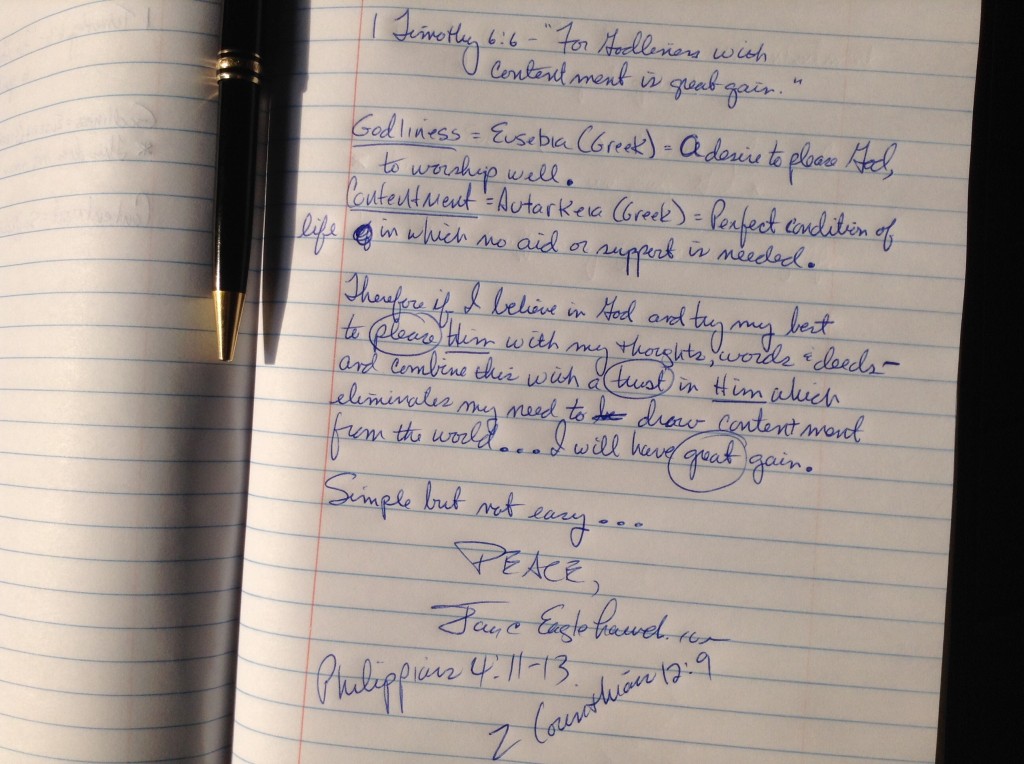 1 Timothy 6:6 - "For Godliness with
contentment is great gain."
Godliness = Eusebia (Greek) = A desire to please God,
to worship well.
Contentment = Autarkeia (Greek) = Perfect condition of
life in which no aid or support is needed.
Therefore if I believe in God and try my best
to please Him with my thoughts, words & deeds -
and combine this with a trust in Him which
eliminates my need to draw contentment
from the world.... I will have great gain.
Simple but not easy ...
PEACE,
Philippians 4:11-13
2 Corinthians 12:9